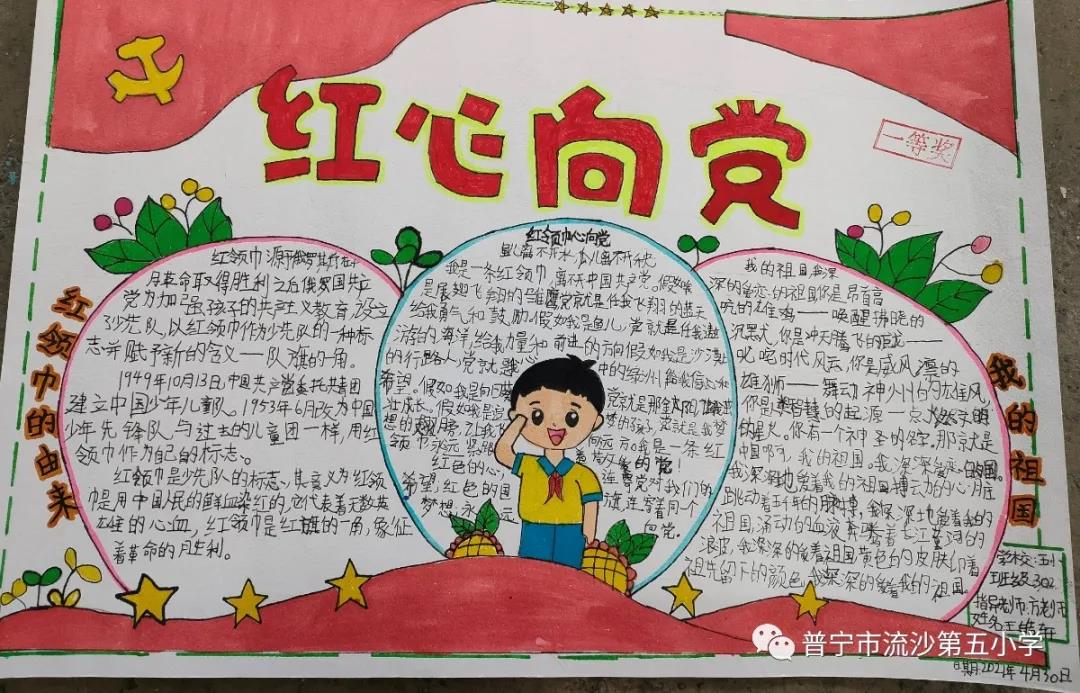 红心向党
一等奖
红领巾的由来
红领巾源于俄罗斯在十
月革命取得胜利之后俄罗国共产
党为加强孩子的共产主义教育,设立
了少先队,以红领巾作为少先队的一种标
志并赋予新的含义——队旗的一角。
1949年10月13日,中国共产党委托共青团
建立中国少年儿童队。1953年6月改为中国
少年先锋队,与过去的儿童团一样,用红
领巾作为自己的标志。
红领巾是少先队的标志。其意义为红领
巾是用中国人民的鲜血染红的,它代表着无数英
雄的心血,红领巾是红旗的一角,象征
着革命的胜利。
红领巾心向党
我是一条红领巾,离不开中国共产党。假如我
是展翅飞翔的雏鹰党就是任我飞翔的蓝天
给我勇气和鼓励,假如我是鱼儿,党就是任我遨
游的海洋,给我力量和前进的方向假如我是沙漠
的行路人,党就是沙漠中的绿洲给我信心和
希望。假如我是向日葵
党就是那金
梦的孩子,党就是我梦
我是一条红
领巾永远紧跟着敬爱的党!
红色的心,连着党对我们的
希望,红色的国旗,连穿着同一个
梦想,永远向党。
我的祖国
我的祖国我深
深的爱恋的祖国你是昂首高
吭的雄鸡——唤醒拂晓的
沉黑犬,你是冲天腾飞的巨龙——
叱咤时代风云,你是威风凛凛的
雄狮——舞动神州的雄风
你是人类智慧的起源一点燃文明
的星火。你有一个神圣的名字,那就是
中国啊,我的祖国。我深深爱恋的祖国。
我深深地爱着我的祖国搏动的心脏
跳动着五千年的脉搏,我深深地爱着我的
祖国涌动的血液奔腾着长江黄河的
浪皮,我深深的爱着祖国黄色的皮肤印着
祖先留下的颜色,我深深的爱着我的祖国
学校:五小
班级:302
指导老师:方老师
姓名
日期:2021年4月30日
普宁市流沙第五小学